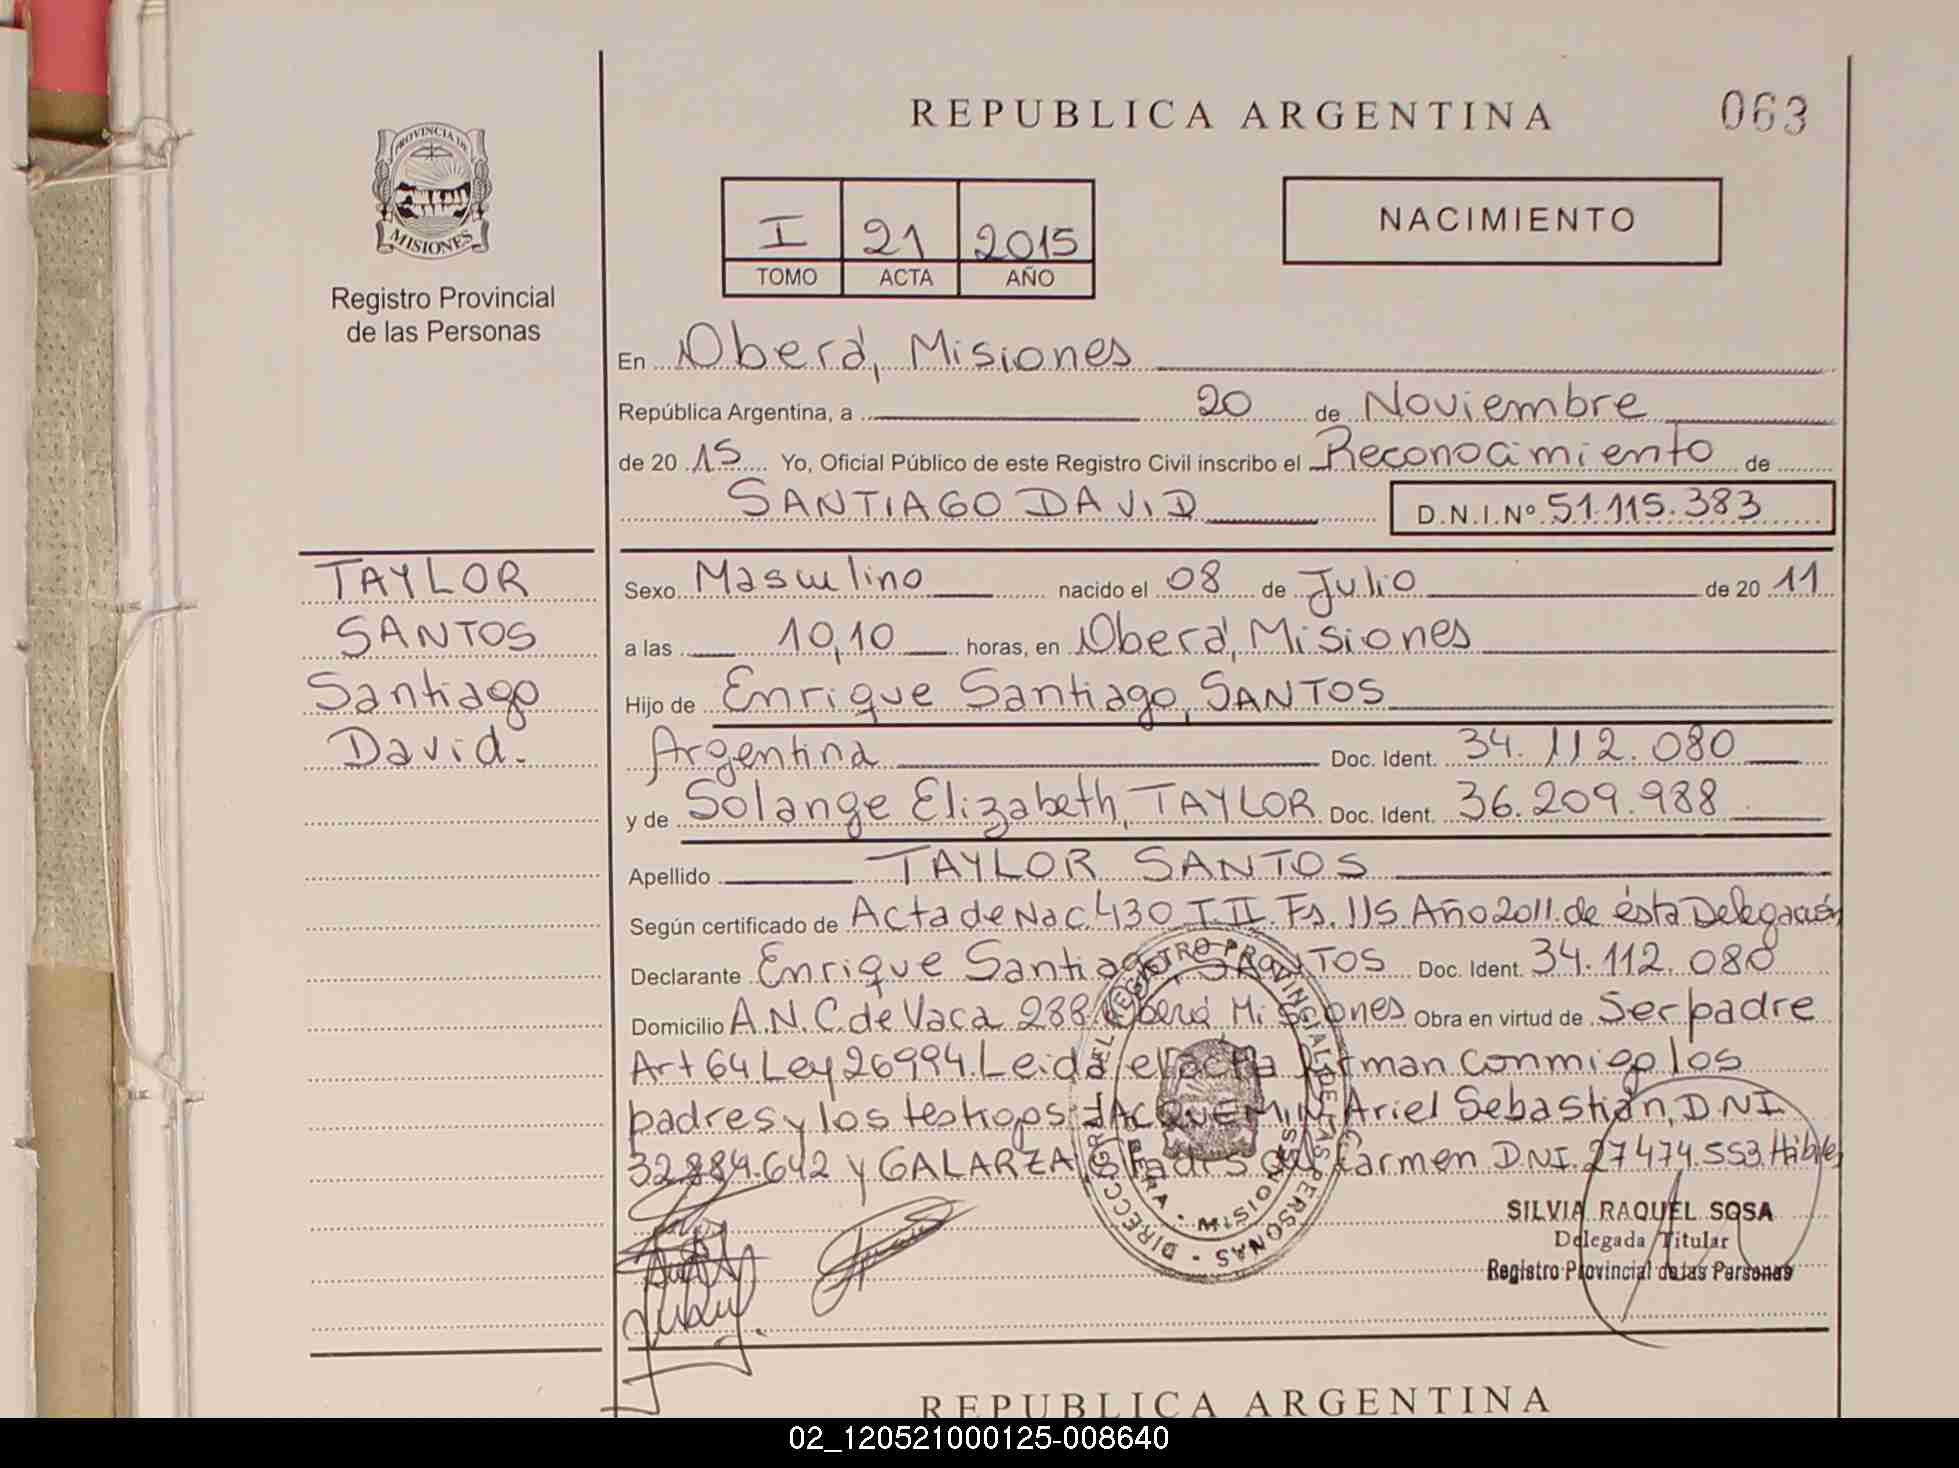 REPUBLICA ARGENTINA
063
PROVINCIA DE
MISIONES
Registro Provincial
de las Personas
I 21 2015
TOMO ACTA AÑO
NACIMIENTO
En Oberá, Misiones
República Argentina, a 20 de Noviembre
de 20 15 Yo, Oficial Público de este Registro Civil inscribo el Reconocimiento de
SANTIAGO DAVID D.N.I.Nº 51.115.383
TAYLOR
SANTOS
Santiago
David.
Sexo Masculino nacido el 08 de Julio de 20 11
a las 10,10 horas, en Oberá, Misiones
Hijo de Enrique Santiago, SANTOS
Argentina Doc. Ident. 34.112.080
y de Solange Elizabeth, TAYLOR Doc. Ident. 36.209.988
Apellido TAYLOR SANTOS
Según certificado de Acta de Nac 430 T.II. Fs. 115 Año 2011. de ésta Delegación
Declarante Enrique Santiago, SANTOS Doc. Ident. 34.112.080
Domicilio A.N.C. de Vaca 288 Oberá Misiones Obra en virtud de Ser padre
Art 64 Ley 26994. Leida el acta firman conmigo los
padres y los testigos JACQUEMIN, Ariel Sebastián, DNI
32.884.642 y GALARZA Gladis del Carmen DNI. 27474.553 Hábiles
DIRECC. GRAL. DEL REGISTRO PROVINCIAL DE LAS PERSONAS
OBERA - MISIONES
SILVIA RAQUEL SOSA
Delegada Titular
Registro Provincial de las Personas
REPUBLICA ARGENTINA
02_120521000125-008640